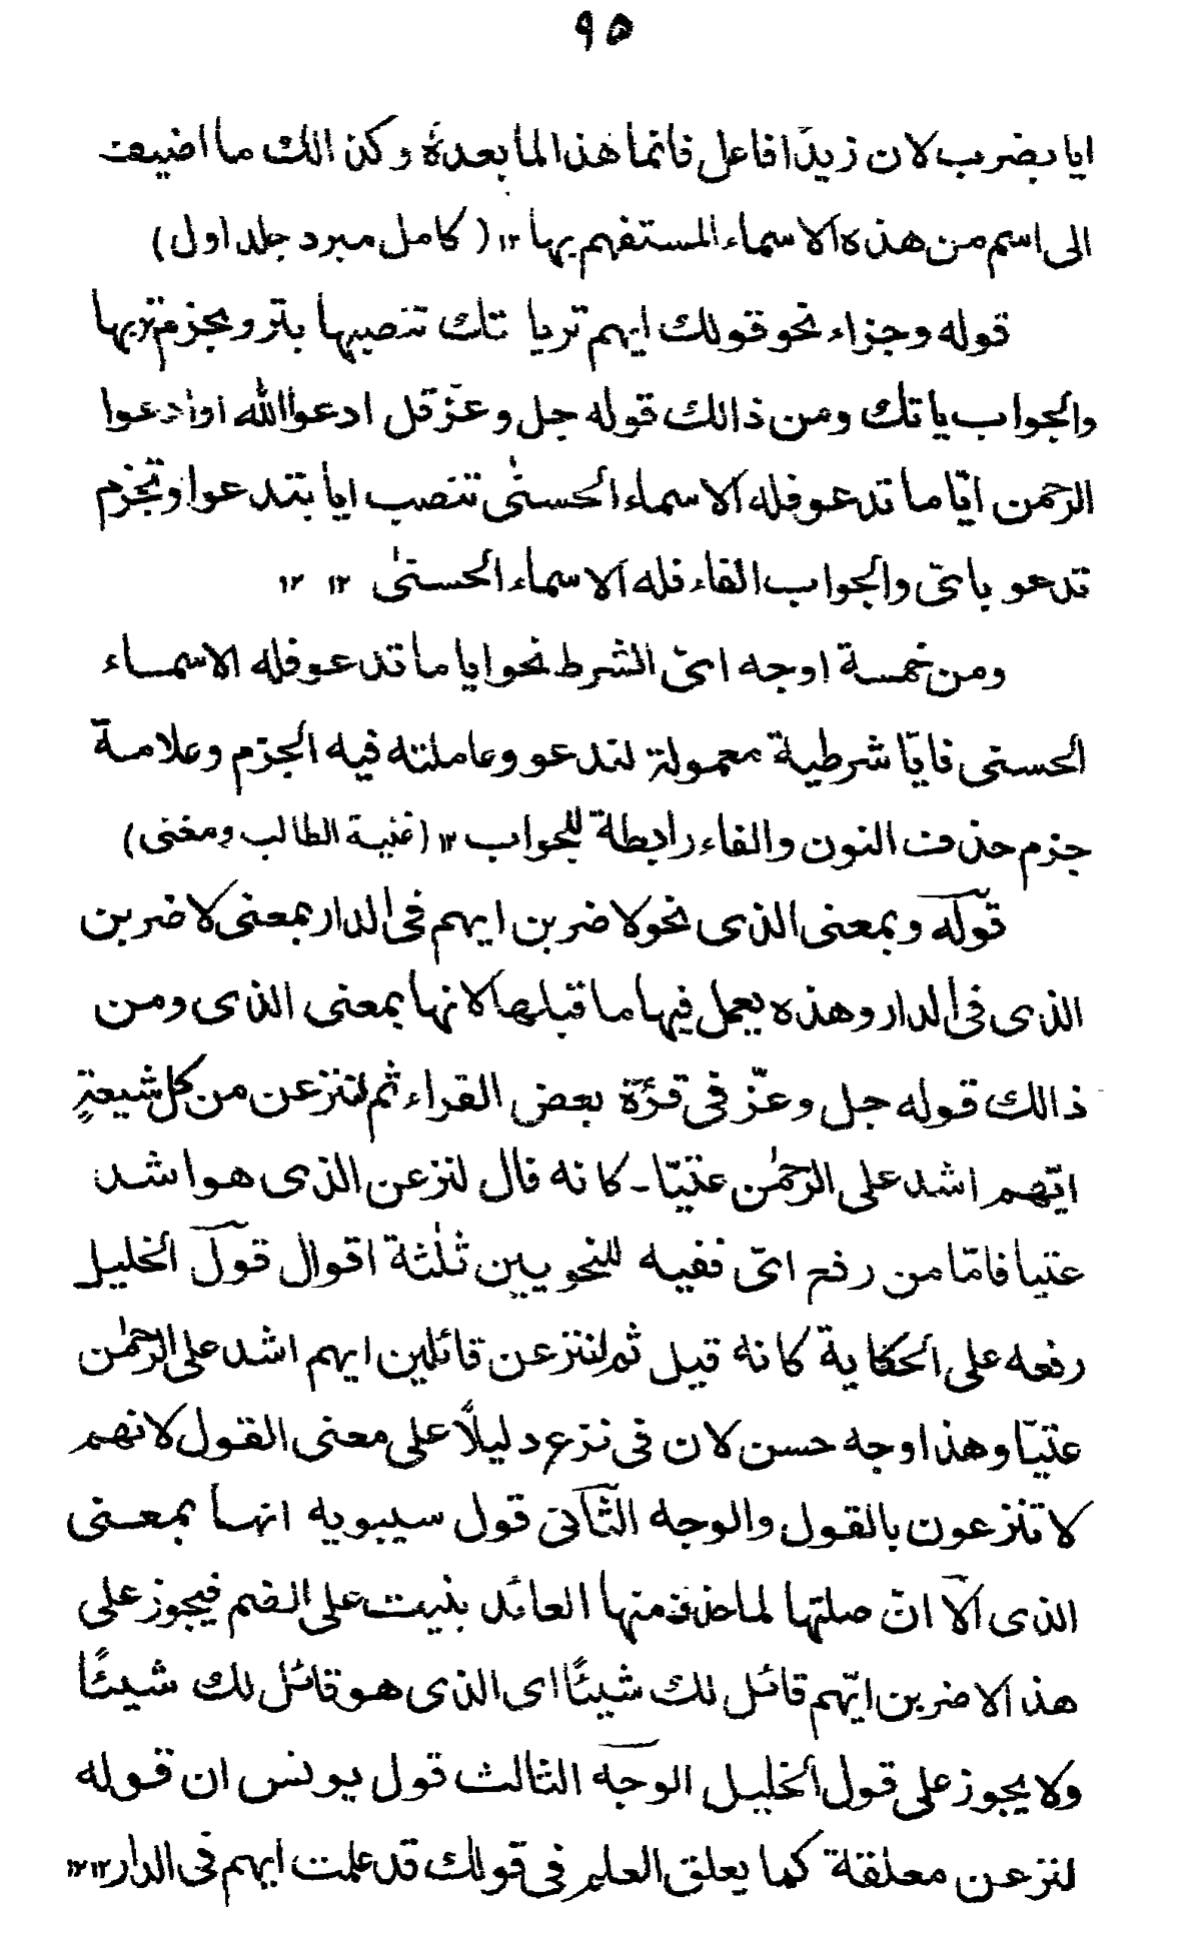 ٩٥
ايا بضرب لان زيدًا فاعل فانما هذا لما بعدهٗ وكذالك ما اضيف
الى اسم من هذه الاسماء المستفهم بها ١٢ (كامل مبرد جلد اول)
قوله وجزاء نحو قولك ايهم تر يا تك تنصبها بتر وبجزم تر بها
والجواب ياتك ومن ذالك قوله جل وعزّ قل ادعوا الله اوادعوا
الرحمن ايّا ما تدعو فله الاسماء الحسنٰى تنصب ايا بتدعوا وتجزم
تدعو باىّ والجواب الفاء فله الاسماء الحسنىٰ ١٢ ١٢
ومن خمسة اوجه اىّ الشرط نحو ايا ما تدعو فله الاسماء
الحسنى فايّا شرطية معمولة لتدعو وعاملته فيه الجزم وعلامة
جزم حذف النون والفاء رابطة للجواب ١٢ (غنية الطالب ومغنى)
قوله وبمعنى الذى نحو لاضربن ايهم فى الدار بمعنى لاضربن
الذى فى الدار وهذه يعمل فيها ما قبلها لانها بمعنى الذى ومن
ذالك قوله جل وعزّ فى قرؤة بعض القراء ثم لننزعن من كل شيعةٍ
ايّهم اشد على الرحمٰن عتيّا۔ كانه قال لنزعن الذى هو اشد
عتيا فامّا من رفع اىّ ففيه للنحويين ثلٰثة اقوال قول الخليل
رفعه على الحكاية كانه قيل ثم لننزعن قائلين ايهم اشد على الرحمٰن
عتيّا وهذا وجه حسن لان فى نزع دليلًا على معنى القول لانهم
لا تنزعون بالقول والوجه الثانى قول سيبويه انها بمعنى
الذى الّا انّ صلتها لما حذف منها العائد بنيت على الضم فيجوز على
هذا لاضربن ايّهم قائل لك شيئًا اى الذى هو قائل لك شيئًا
ولا يجوز على قول الخليل الوجه الثالث قول يونس ان قوله
لنزعن معلقة كما يعلق العلم فى قولك قد علمت ايهم فى الدار ١٢ ١٢